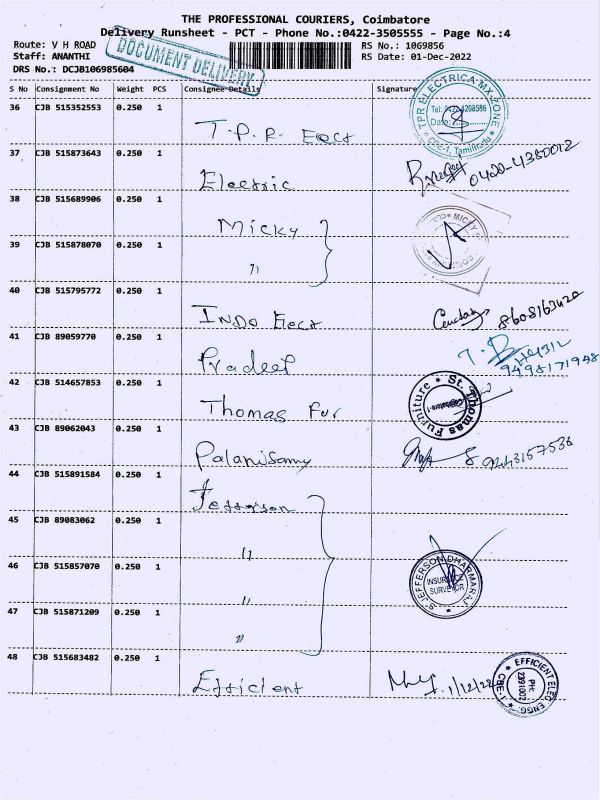 THE PROFESSIONAL COURIERS, Coimbatore
Delivery Runsheet - PCT - Phone No.:0422-3505555 - Page No.:4
Route: V H ROAD
RS No.: 1069856
Staff: ANANTHI
RS Date: 01-Dec-2022
DOCUMENT DELIVERY
DRS No.: DCJB106985604
S No Consignment No Weight PCS Consignee Details Signature
36 CJB 515352553 0.250 1
T.P.R. Elect
TPR ELECTRICA MX ZONE
Tel: 0422-4208586
Date:
CBE-1, Tamilnadu
37 CJB 515873643 0.250 1
Electric
0420-4380012
38 CJB 515689906 0.250 1
Micky
39 CJB 515878070 0.250 1
"
40 CJB 515795772 0.250 1
INDO Elect
8608163420
41 CJB 89059770 0.250 1
Pradeep
9498171998
42 CJB 514657853 0.250 1
Thomas Fur
St. Thomas Furniture
43 CJB 89062043 0.250 1
Palanisamy
44 CJB 515891584 0.250 1
Jefferson
45 CJB 89083062 0.250 1
"
46 CJB 515857070 0.250 1
"
S. JEFFERSON DHARMARAJ
INSURANCE
SURVEYOR
47 CJB 515871209 0.250 1
"
48 CJB 515683482 0.250 1
Efficient
1/12/22
EFFICIENT ELEC ENGG.
PH:
2391002
CBE-1